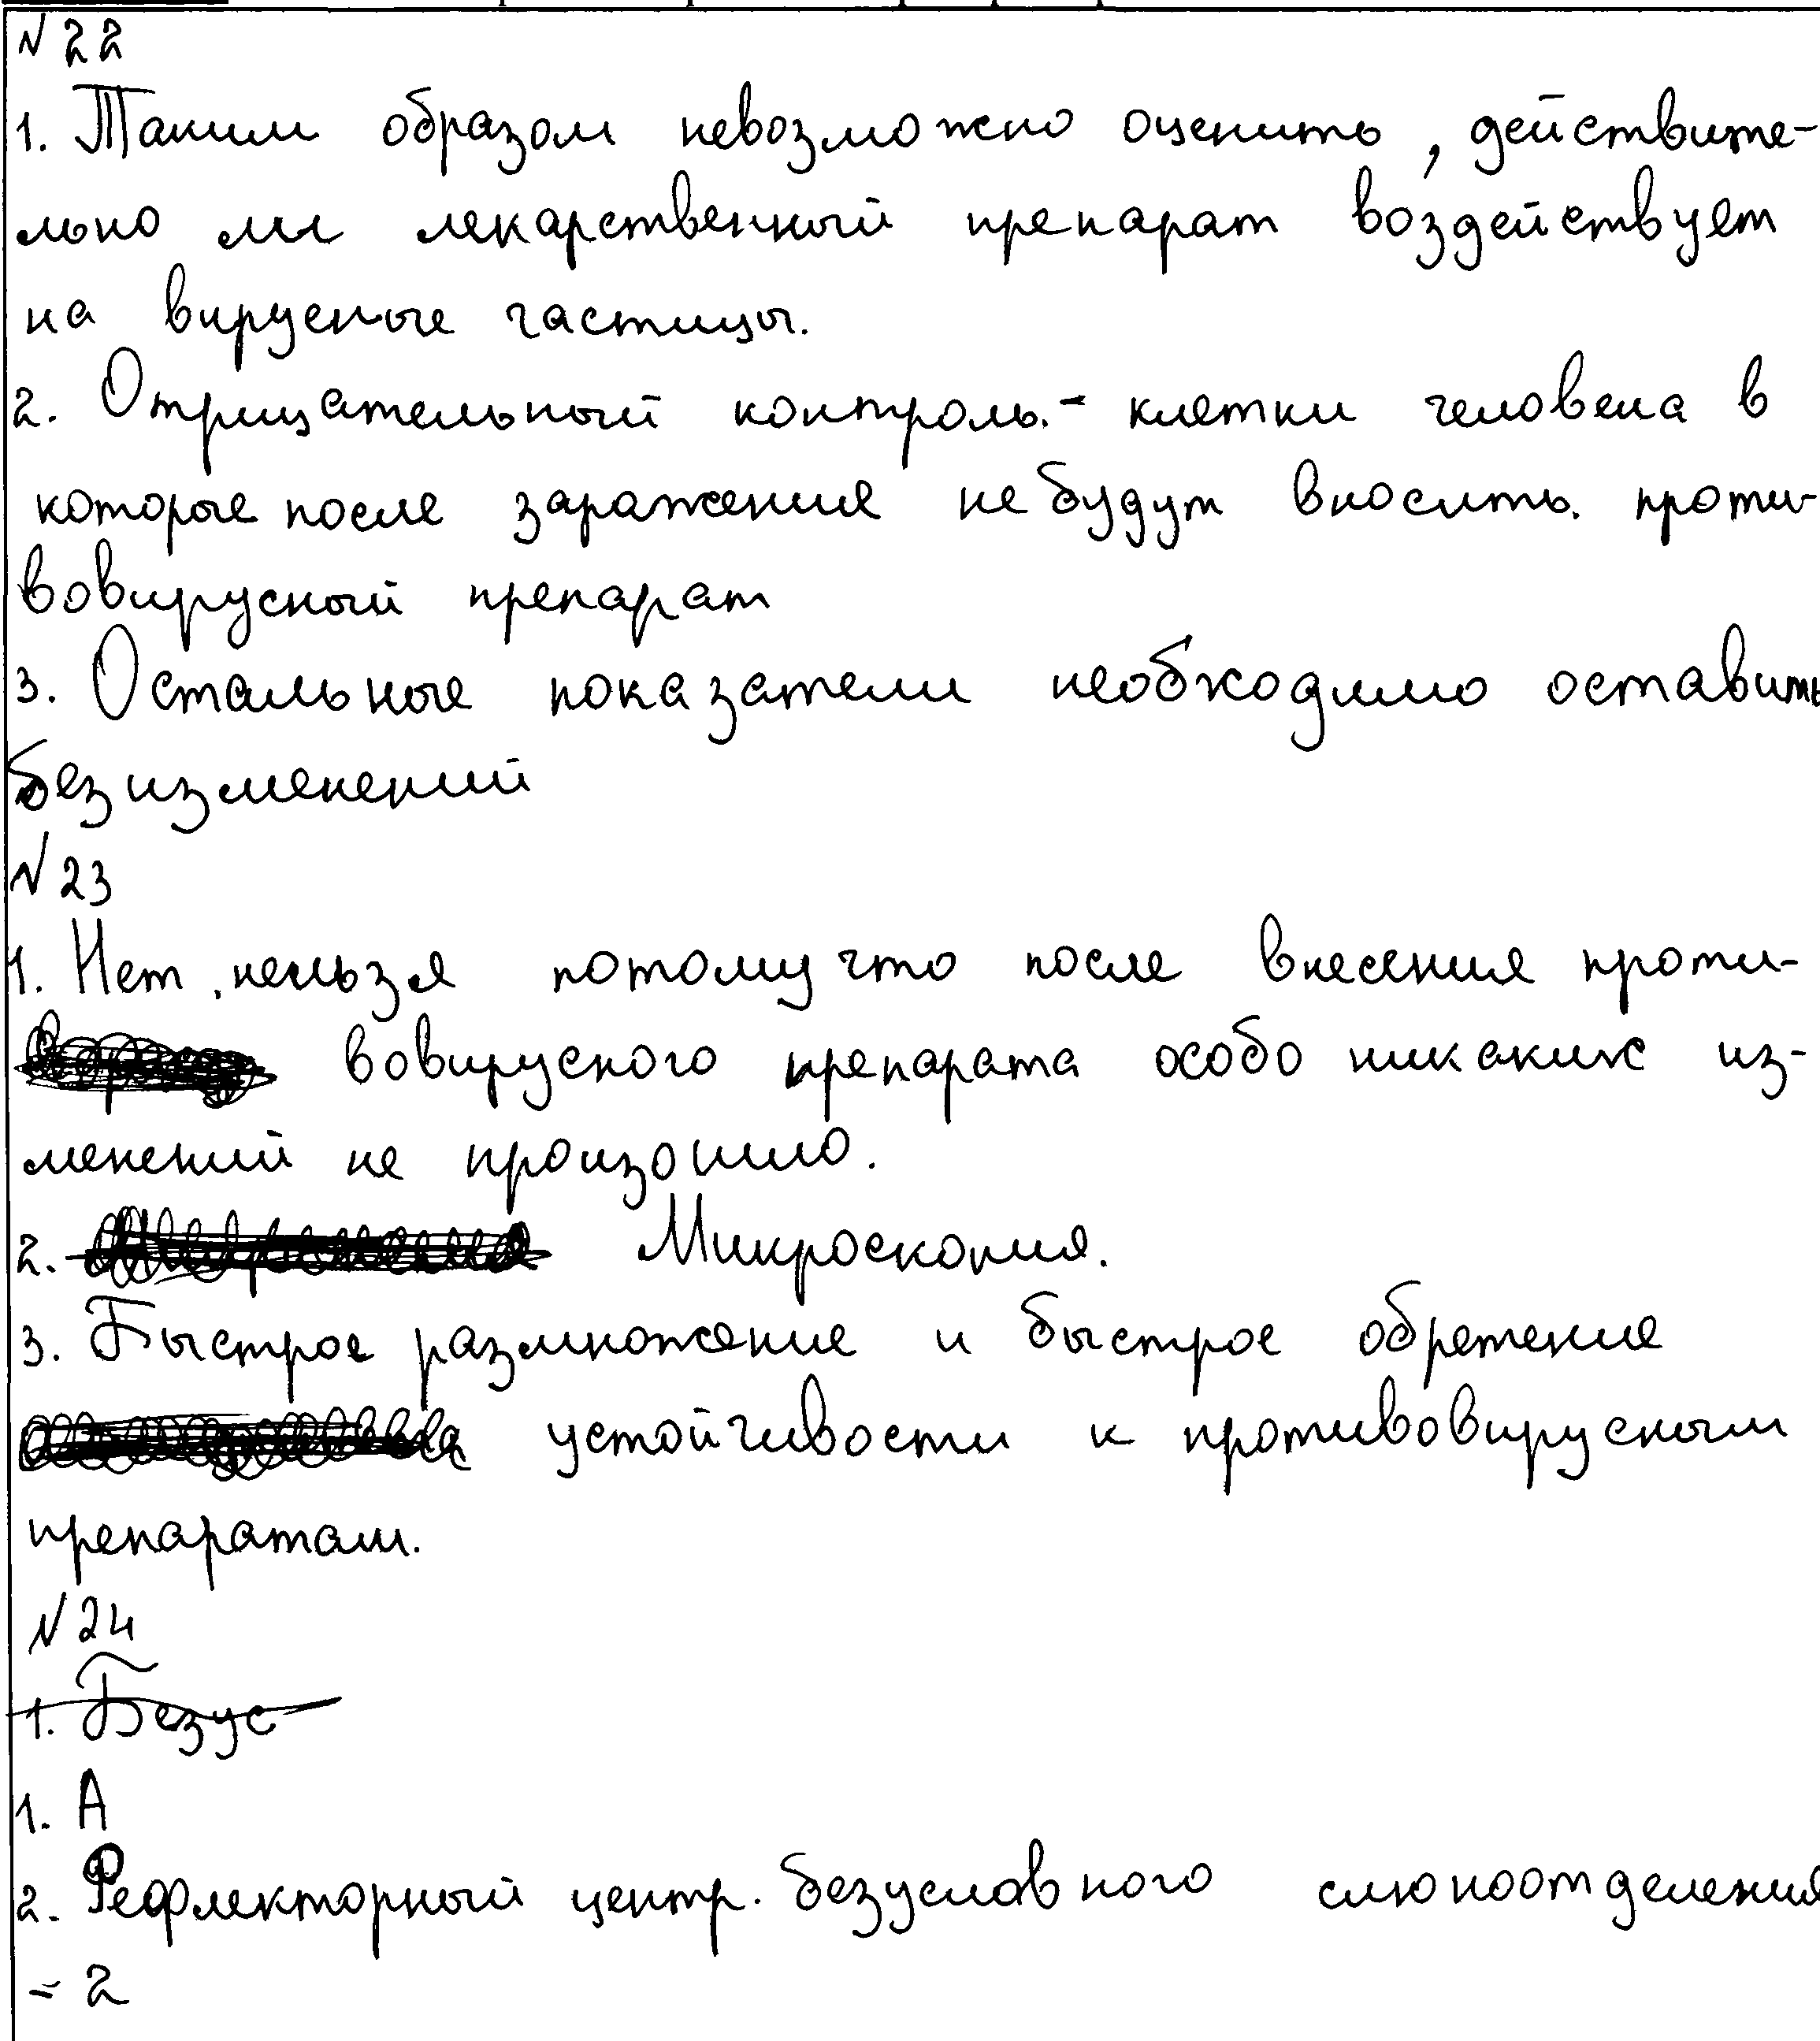 №22
1. Таким образом невозможно оценить, действите-
льно ли лекарственный препарат воздействует
на вирусные частицы.
2. Отрицательный контроль. - клетки человека в
которые после заражения не будут вносить. проти-
вовирусный препарат
3. Остальные показатели необходимо оставить
без изменений
№23
1. Нет, нельзя потому что после внесения проти-
вовирусного препарата особо никаких из-
менений не произошло.
2. Микроскопия.
3. Быстрое размножение и быстрое обретение
устойчивости к противовирусным
препаратам.
№24
1. Безус
1. А
2. Рефлекторный центр. безусловного слюноотделения
- 2